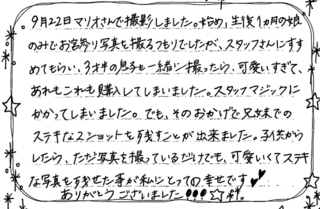 9月22日マリオさんで撮影しました。始め、生後1ヵ月の娘
のみでお宮参り写真を撮るつもりでしたが、スタッフさんにすす
めてもらい、3才半の息子も一緒に撮ったら、可愛いすぎて、
あれもこれも購入してしまいました。スタッフマジックに
かかってしまいました。でも、そのおかげで兄妹での
ステキな2ショットを残すことが出来ました。子供から
したら、ただ写真を撮っているだけでも、可愛いくてステキ
な写真を残せた事が私にとっての幸せです♥♥
ありがとうございました!!!☆